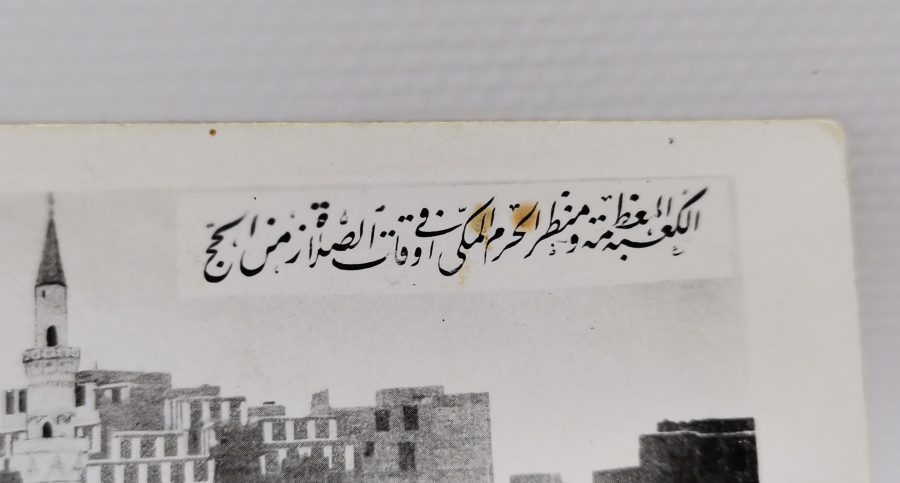 الكعبة المعظمة ومنظر الحرم المكي في أوقات الصلاة زمن الحج